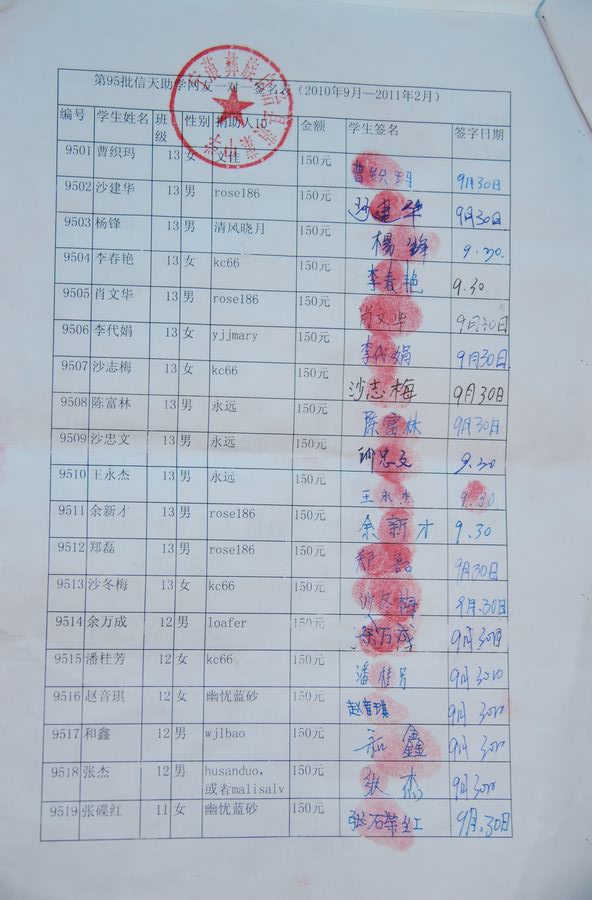 第95批信天助学网友一对一签名表（2010年9月—2011年2月）
编号 学生姓名 班级 性别 捐助人ID 金额 学生签名 签字日期
9501 曹织玛 13 女 文佳 150元 曹织玛 9月30日
9502 沙建华 13 男 rose186 150元 沙建华 9月30日
9503 杨锋 13 男 清风晓月 150元 楊鋒 9.30.
9504 李春艳 13 女 kc66 150元 李春艳 9.30
9505 肖文华 13 男 rose186 150元 肖文华 9月30日
9506 李代娟 13 女 yjjmary 150元 李代娟 9月30日
9507 沙志梅 13 女 kc66 150元 沙志梅 9月30日
9508 陈富林 13 男 永远 150元 陈富林 9月30日
9509 沙忠文 13 男 永远 150元 沙忠文 9.30
9510 王永杰 13 男 永远 150元 王永杰 9.30
9511 余新才 13 男 rose186 150元 余新才 9.30
9512 郑磊 13 男 rose186 150元 郑磊 9月30日
9513 沙冬梅 13 女 kc66 150元 沙冬梅 9月30日
9514 余万成 12 男 loafer 150元 余万成 9月30日
9515 潘桂芳 12 女 kc66 150元 潘桂芳 9月30日
9516 赵音琪 12 女 幽忧蓝砂 150元 赵音琪 9月30日
9517 和鑫 12 男 wjlbao 150元 和鑫 9月30日
9518 张杰 12 男 husanduo, 150元 张杰 9月30日
或者malisalv
9519 张碟红 11 女 幽忧蓝砂 150元 9月30日